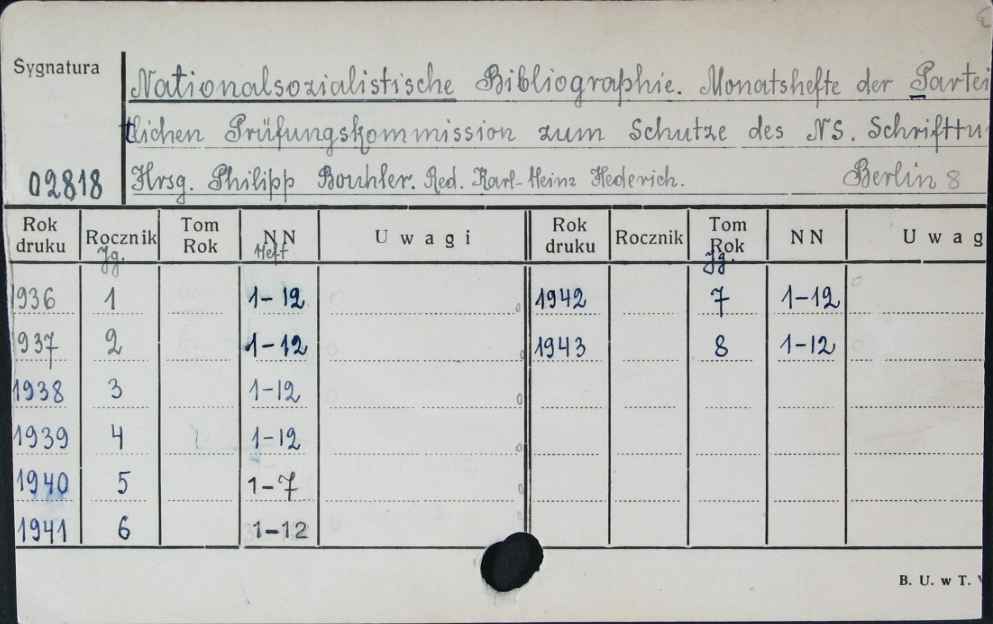 Sygnatura
Nationalsozialistische Bibliographie. Monatshefte der Partei
tlichen Prüfungskommission zum Schutze des NS. Schrifttu
02818 Hrsg. Philipp Bouhler. Red. Karl-Heinz Hederich. Berlin 8
Rok druku Rocznik Jg. Tom Rok NN Heft Uwagi Rok druku Rocznik Tom Rok Jg. NN Uwag
1936 1 1-12 1942 7 1-12
1937 2 1-12 1943 8 1-12
1938 3 1-12
1939 4 1-12
1940 5 1-7
1941 6 1-12
B. U. w T.